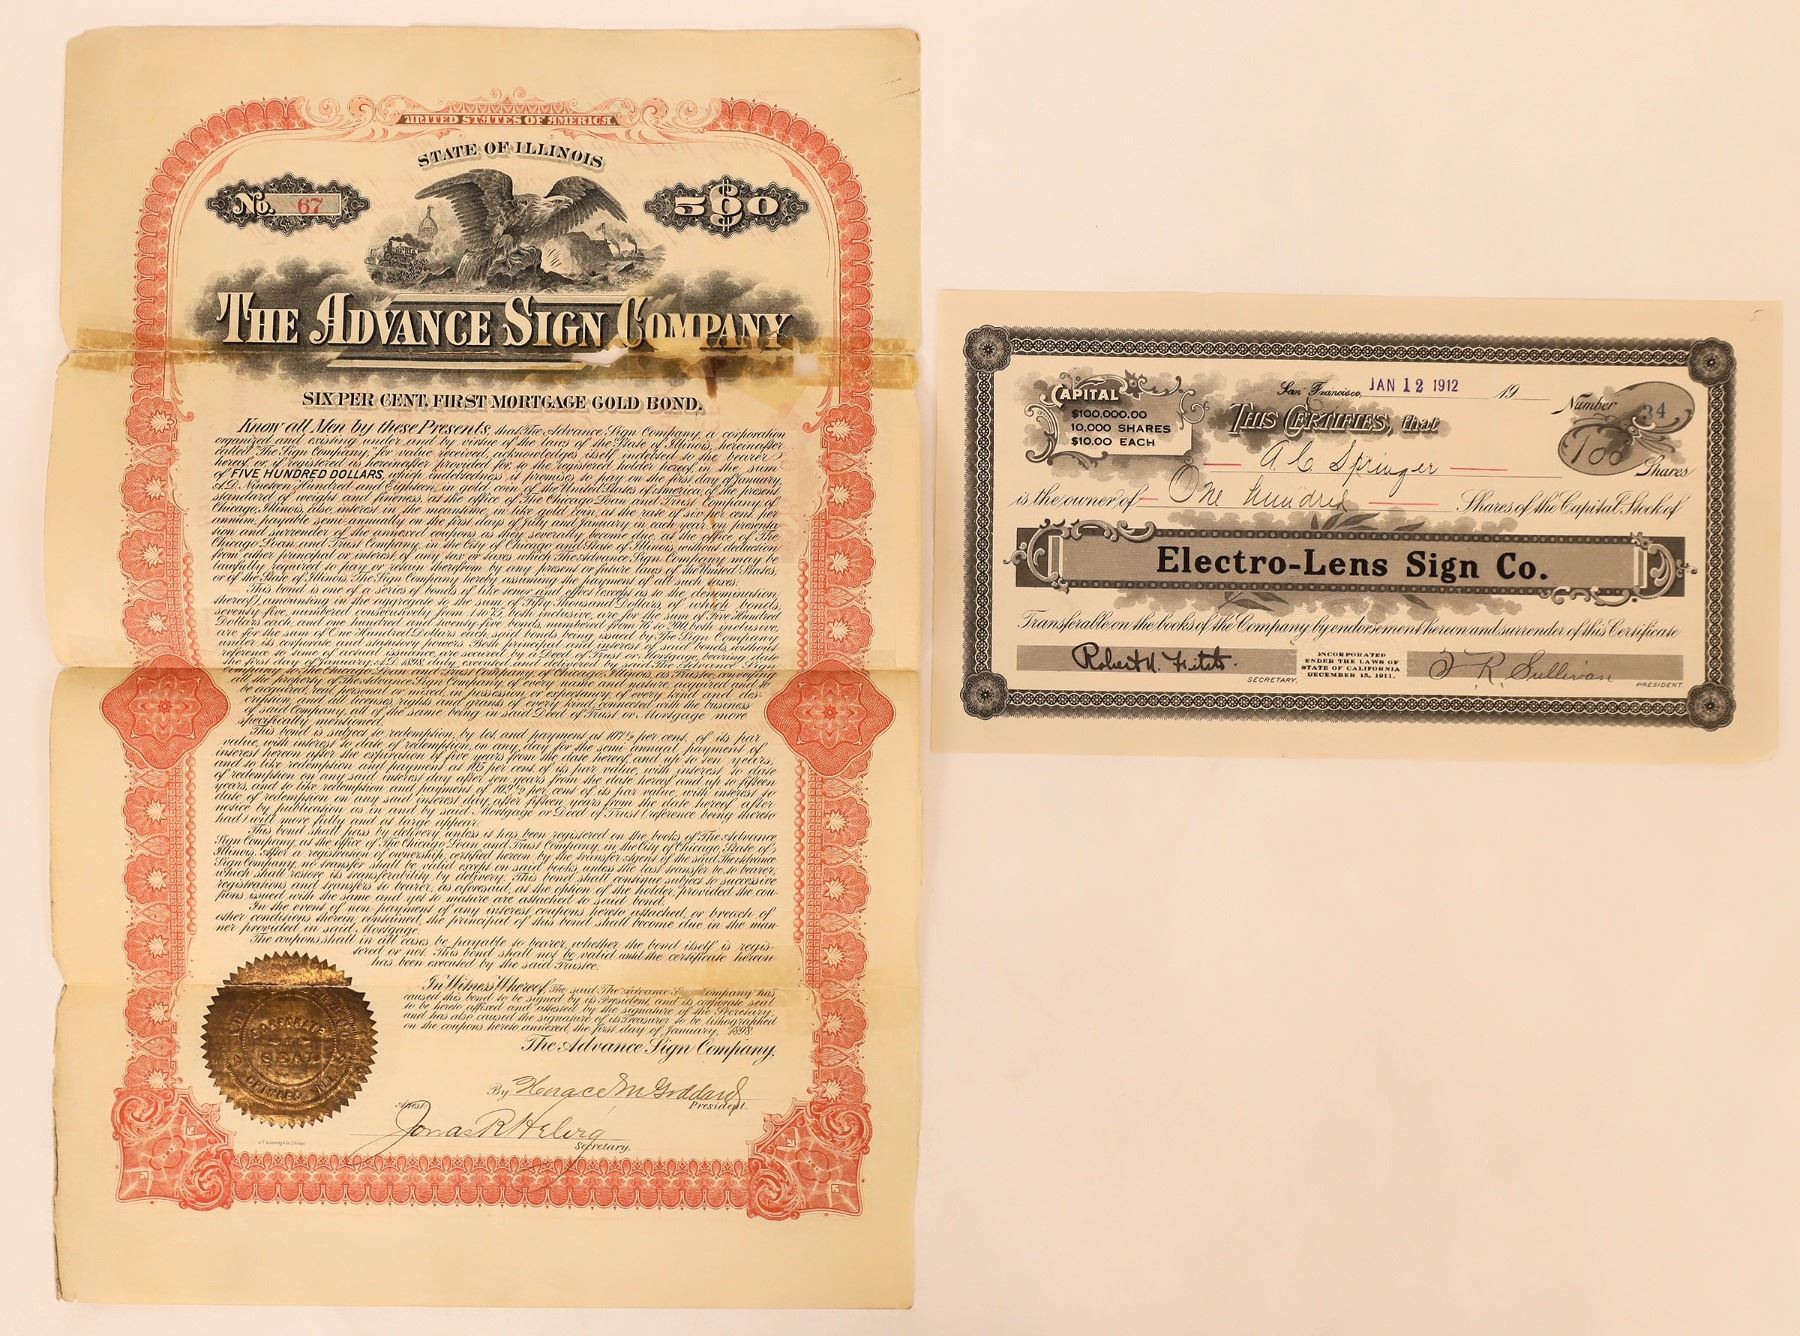 UNITED STATES OF AMERICA.
STATE OF ILLINOIS
No. 67
$500
THE ADVANCE SIGN COMPANY
SIX PER CENT. FIRST MORTGAGE GOLD BOND.
Know all Men by these Presents, that The Advance Sign Company, a corporation
organized and existing under and by virtue of the laws of the State of Illinois, hereinafter
called The Sign Company, for value received, acknowledges itself indebted to the bearer
hereof, or, if registered as hereinafter provided for, to the registered holder hereof, in the sum
of FIVE HUNDRED DOLLARS, which indebtedness it promises to pay on the first day of January,
A.D. Nineteen Hundred and Eighteen, in gold coin of the United States of America, of the present
standard of weight and fineness, at the office of The Chicago Loan and Trust Company, of
Chicago, Illinois, also, interest in the meantime, in like gold coin, at the rate of six per cent. per
annum, payable semi-annually on the first days of July and January in each year, on presenta-
tion and surrender of the annexed coupons as they severally become due, at the office of The
Chicago Loan and Trust Company, in the City of Chicago and State of Illinois, without deduction
from either principal or interest of any tax or taxes which The Advance Sign Company may be
lawfully required to pay or retain therefrom by any present or future laws of the United States,
or of the State of Illinois, The Sign Company hereby assuming the payment of all such taxes.
This bond is one of a series of bonds of like tenor and effect (except as to the denomination
thereof), amounting in the aggregate to the sum of Fifty Thousand Dollars of which bonds,
seventy five, numbered consecutively from 1 to 75, both inclusive, are for the sum of Five Hundred
Dollars each, and one hundred and twenty-five bonds, numbered from 76 to 200, both inclusive,
are for the sum of One Hundred Dollars each, said bonds being issued by The Sign Company
under its corporate and statutory powers. Both principal and interest of said bonds, without
reference to time of actual issuance, are secured by a Deed of Trust or Mortgage, bearing date
the first day of January, A.D. 1898, duly executed and delivered by said The Advance Sign
Company to The Chicago Loan and Trust Company, of Chicago, Illinois, as Trustee, conveying
all the property of The Advance Sign Company of every name and nature, acquired and to
be acquired, real, personal or mixed, in possession, or expectancy, of every kind and des-
cription, and all licenses, rights and grants of every kind, connected with the business
of said Company, all of the same being in said Deed of Trust or Mortgage more
specifically mentioned.
This bond is subject to redemption, by lot, and payment at 107½ per cent. of its par
value, with interest to date of redemption, on any day for the semi-annual payment of
interest hereon, after the expiration of five years from the date hereof, and up to ten years,
and to like redemption and payment at 105 per cent. of its par value, with interest to date
of redemption on any said interest day after ten years from the date hereof and up to fifteen
years, and to like redemption and payment of 102½ per cent. of its par value, with interest to
date of redemption on any said interest day, after fifteen years from the date hereof, after
notice by publication as in and by said Mortgage or Deed of Trust (reference being thereto
had) will more fully and at large appear.
This bond shall pass by delivery, unless it has been registered on the books of The Advance
Sign Company, at the office of The Chicago Loan and Trust Company, in the City of Chicago, State of
Illinois. After a registration of ownership, certified hereon by the transfer Agent of the said The Advance
Sign Company, no transfer shall be valid except on said books, unless the last transfer be to bearer,
which shall restore its transferability by delivery. This bond shall continue subject to successive
registrations and transfers to bearer, as aforesaid, at the option of the holder, provided the cou-
pons issued with the same and yet to mature are attached to said bond.
In the event of non-payment of any interest coupons hereto attached, or breach of
other conditions therein contained, the principal of this bond shall become due in the man-
ner provided in said Mortgage.
The coupons shall in all cases be payable to bearer, whether the bond itself is regis-
tered or not. This bond shall not be valid until the certificate hereon
has been executed by the said Trustee.
In Witness Whereof, The said The Advance Company has
caused this bond to be signed by its President, and its corporate seal
to be hereto affixed and attested by the signature of the Secretary,
and has also caused the signature of its Treasurer to be lithographed
on the coupons hereto annexed, the first day of January, 1898.
The Advance Sign Company,
By Horace M Goddard
President.
Attest
Jonas R Helerg
Secretary.
CORPORATE
SEAL
Capital
$100,000.00
10,000 SHARES
$10.00 EACH
San Francisco, JAN 12 1912 19
Number 34
THIS CERTIFIES, that
100 Shares
A C Springer
is the owner of One Hundred Shares of the Capital Stock of
Electro-Lens Sign Co.
Transferable on the books of the Company by endorsement hereon and surrender of this Certificate
INCORPORATED
UNDER THE LAWS OF
STATE OF CALIFORNIA
DECEMBER 15, 1911.
SECRETARY.
F R Sullivan
PRESIDENT